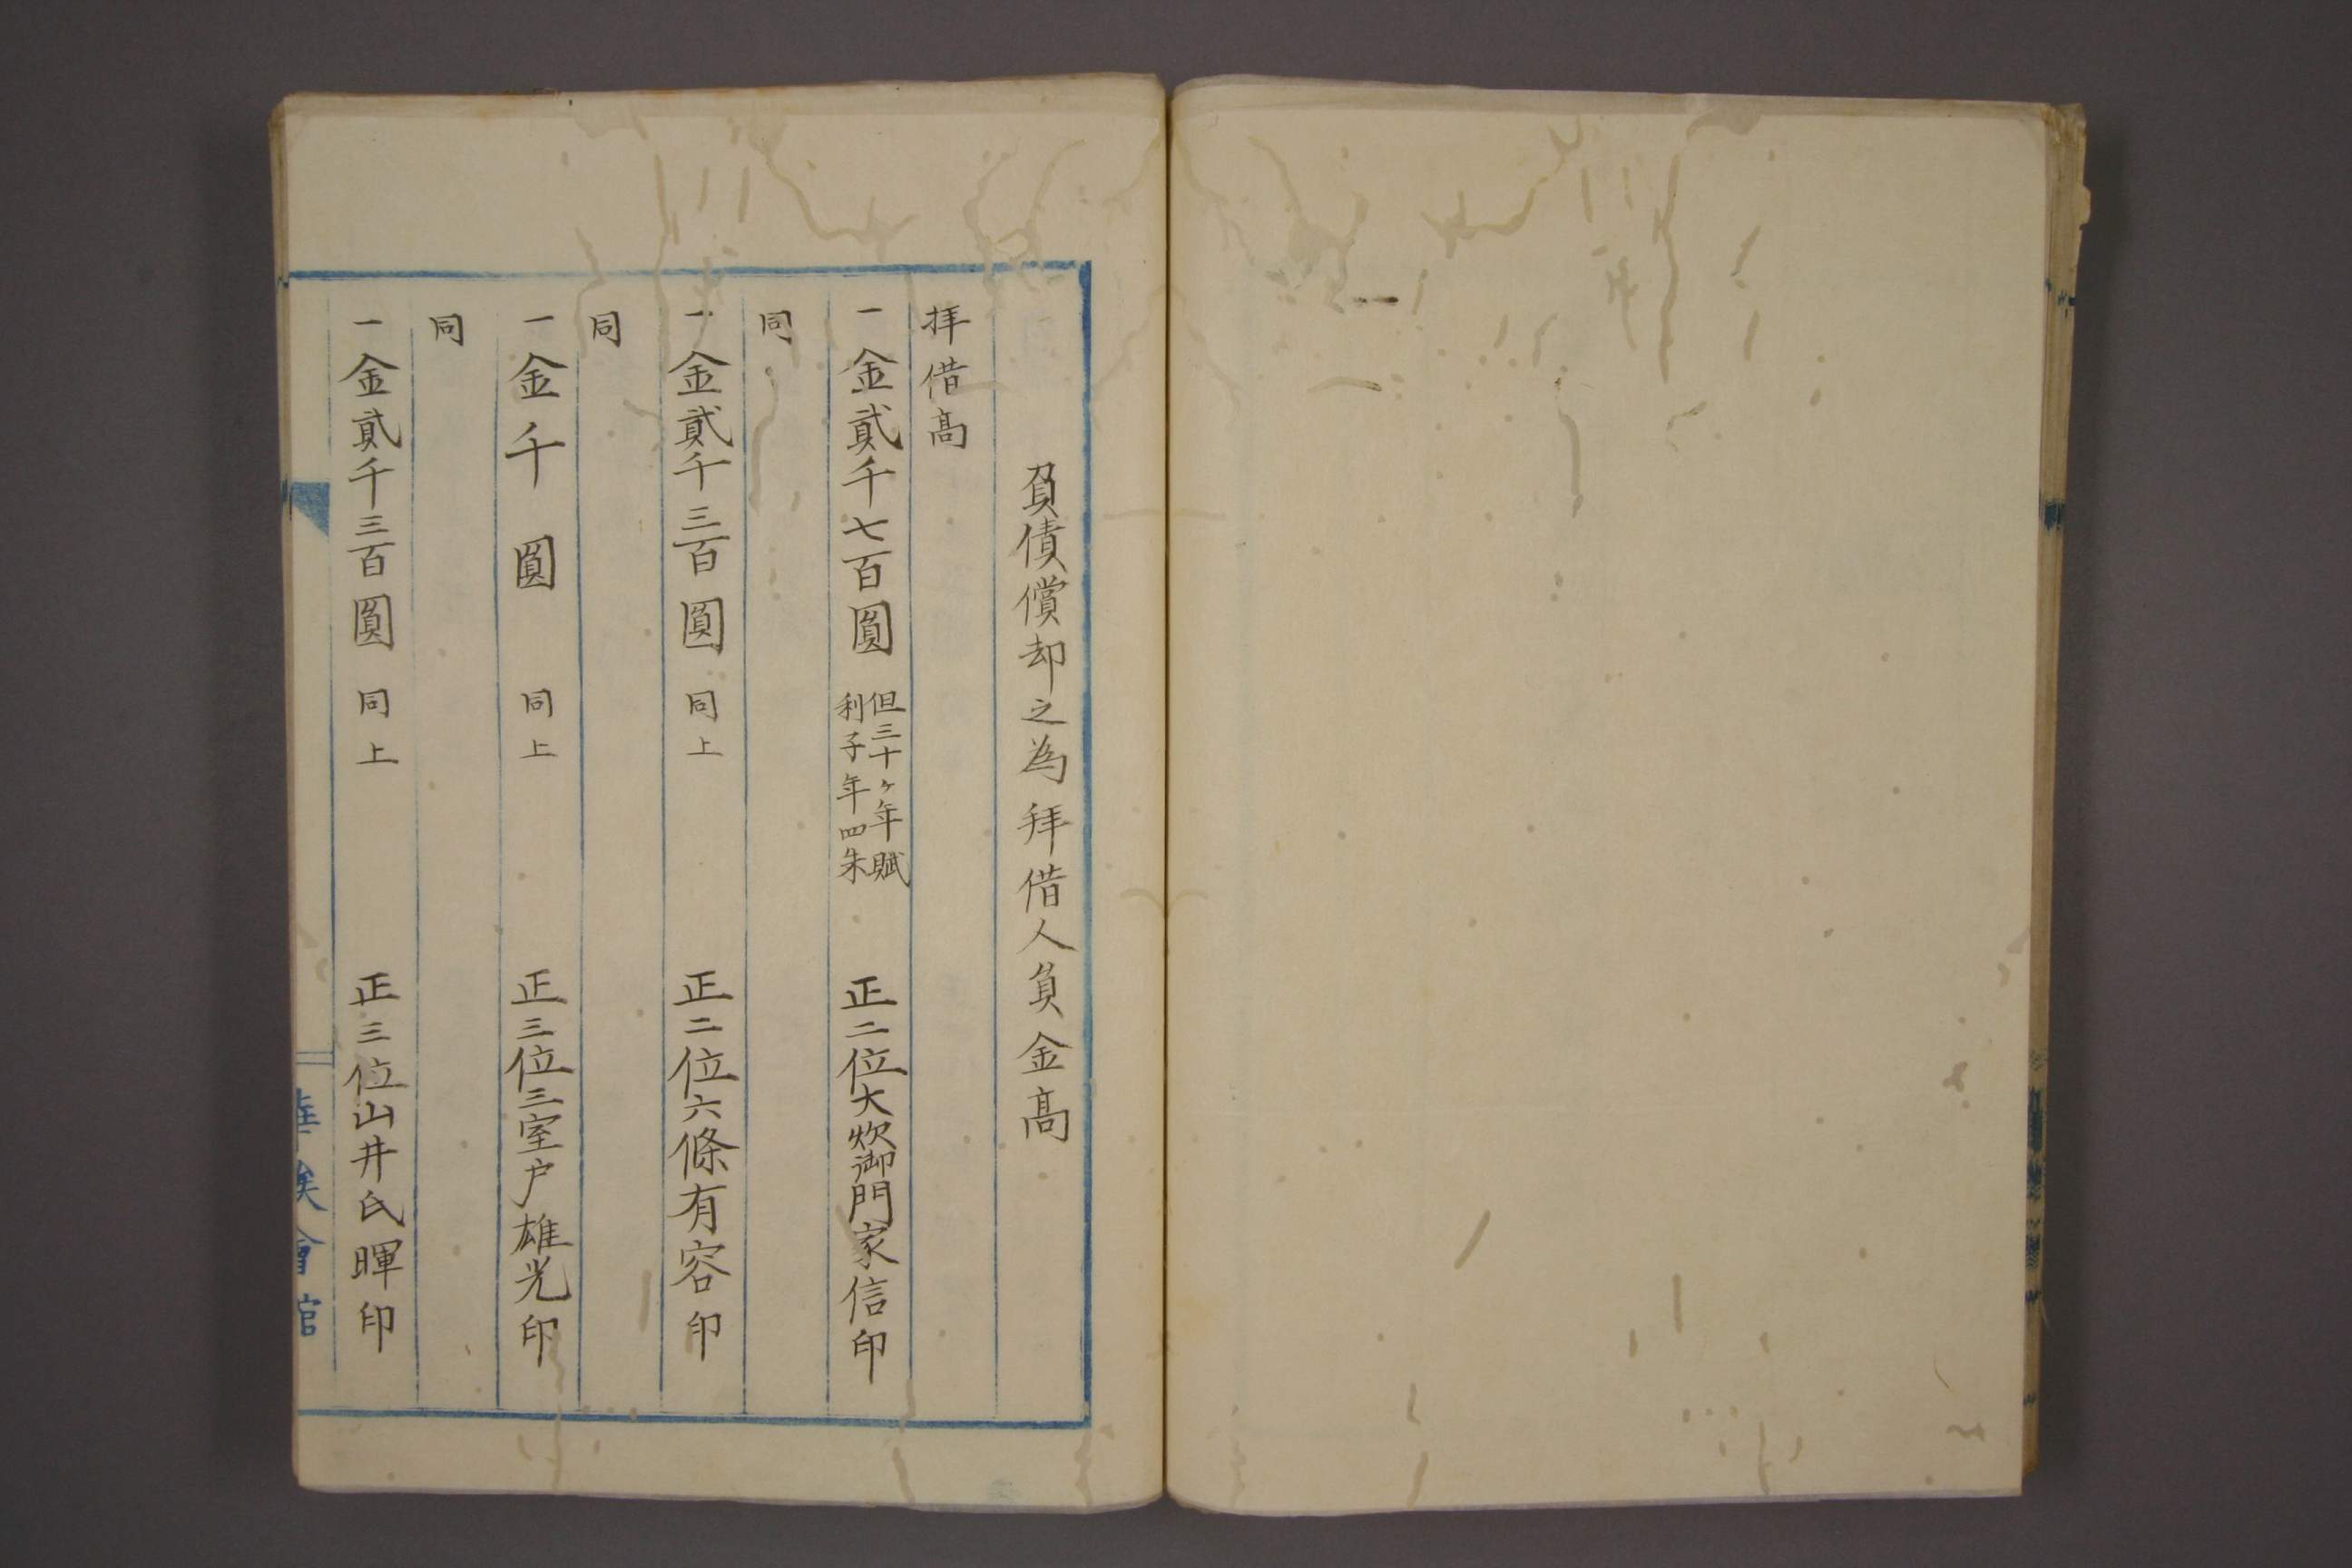 負債償却之為拜借人負金高
拜借高
一金貳千七百圓 但三十ヶ年賦 利子年四朱 正二位大炊御門家信印
同
一金貳千三百圓 同上 正二位六條有容印
同
一金千圓 同上 正三位三室户雄光印
同
一金貳千三百圓 同上 正三位山井氏暉印
華族會館